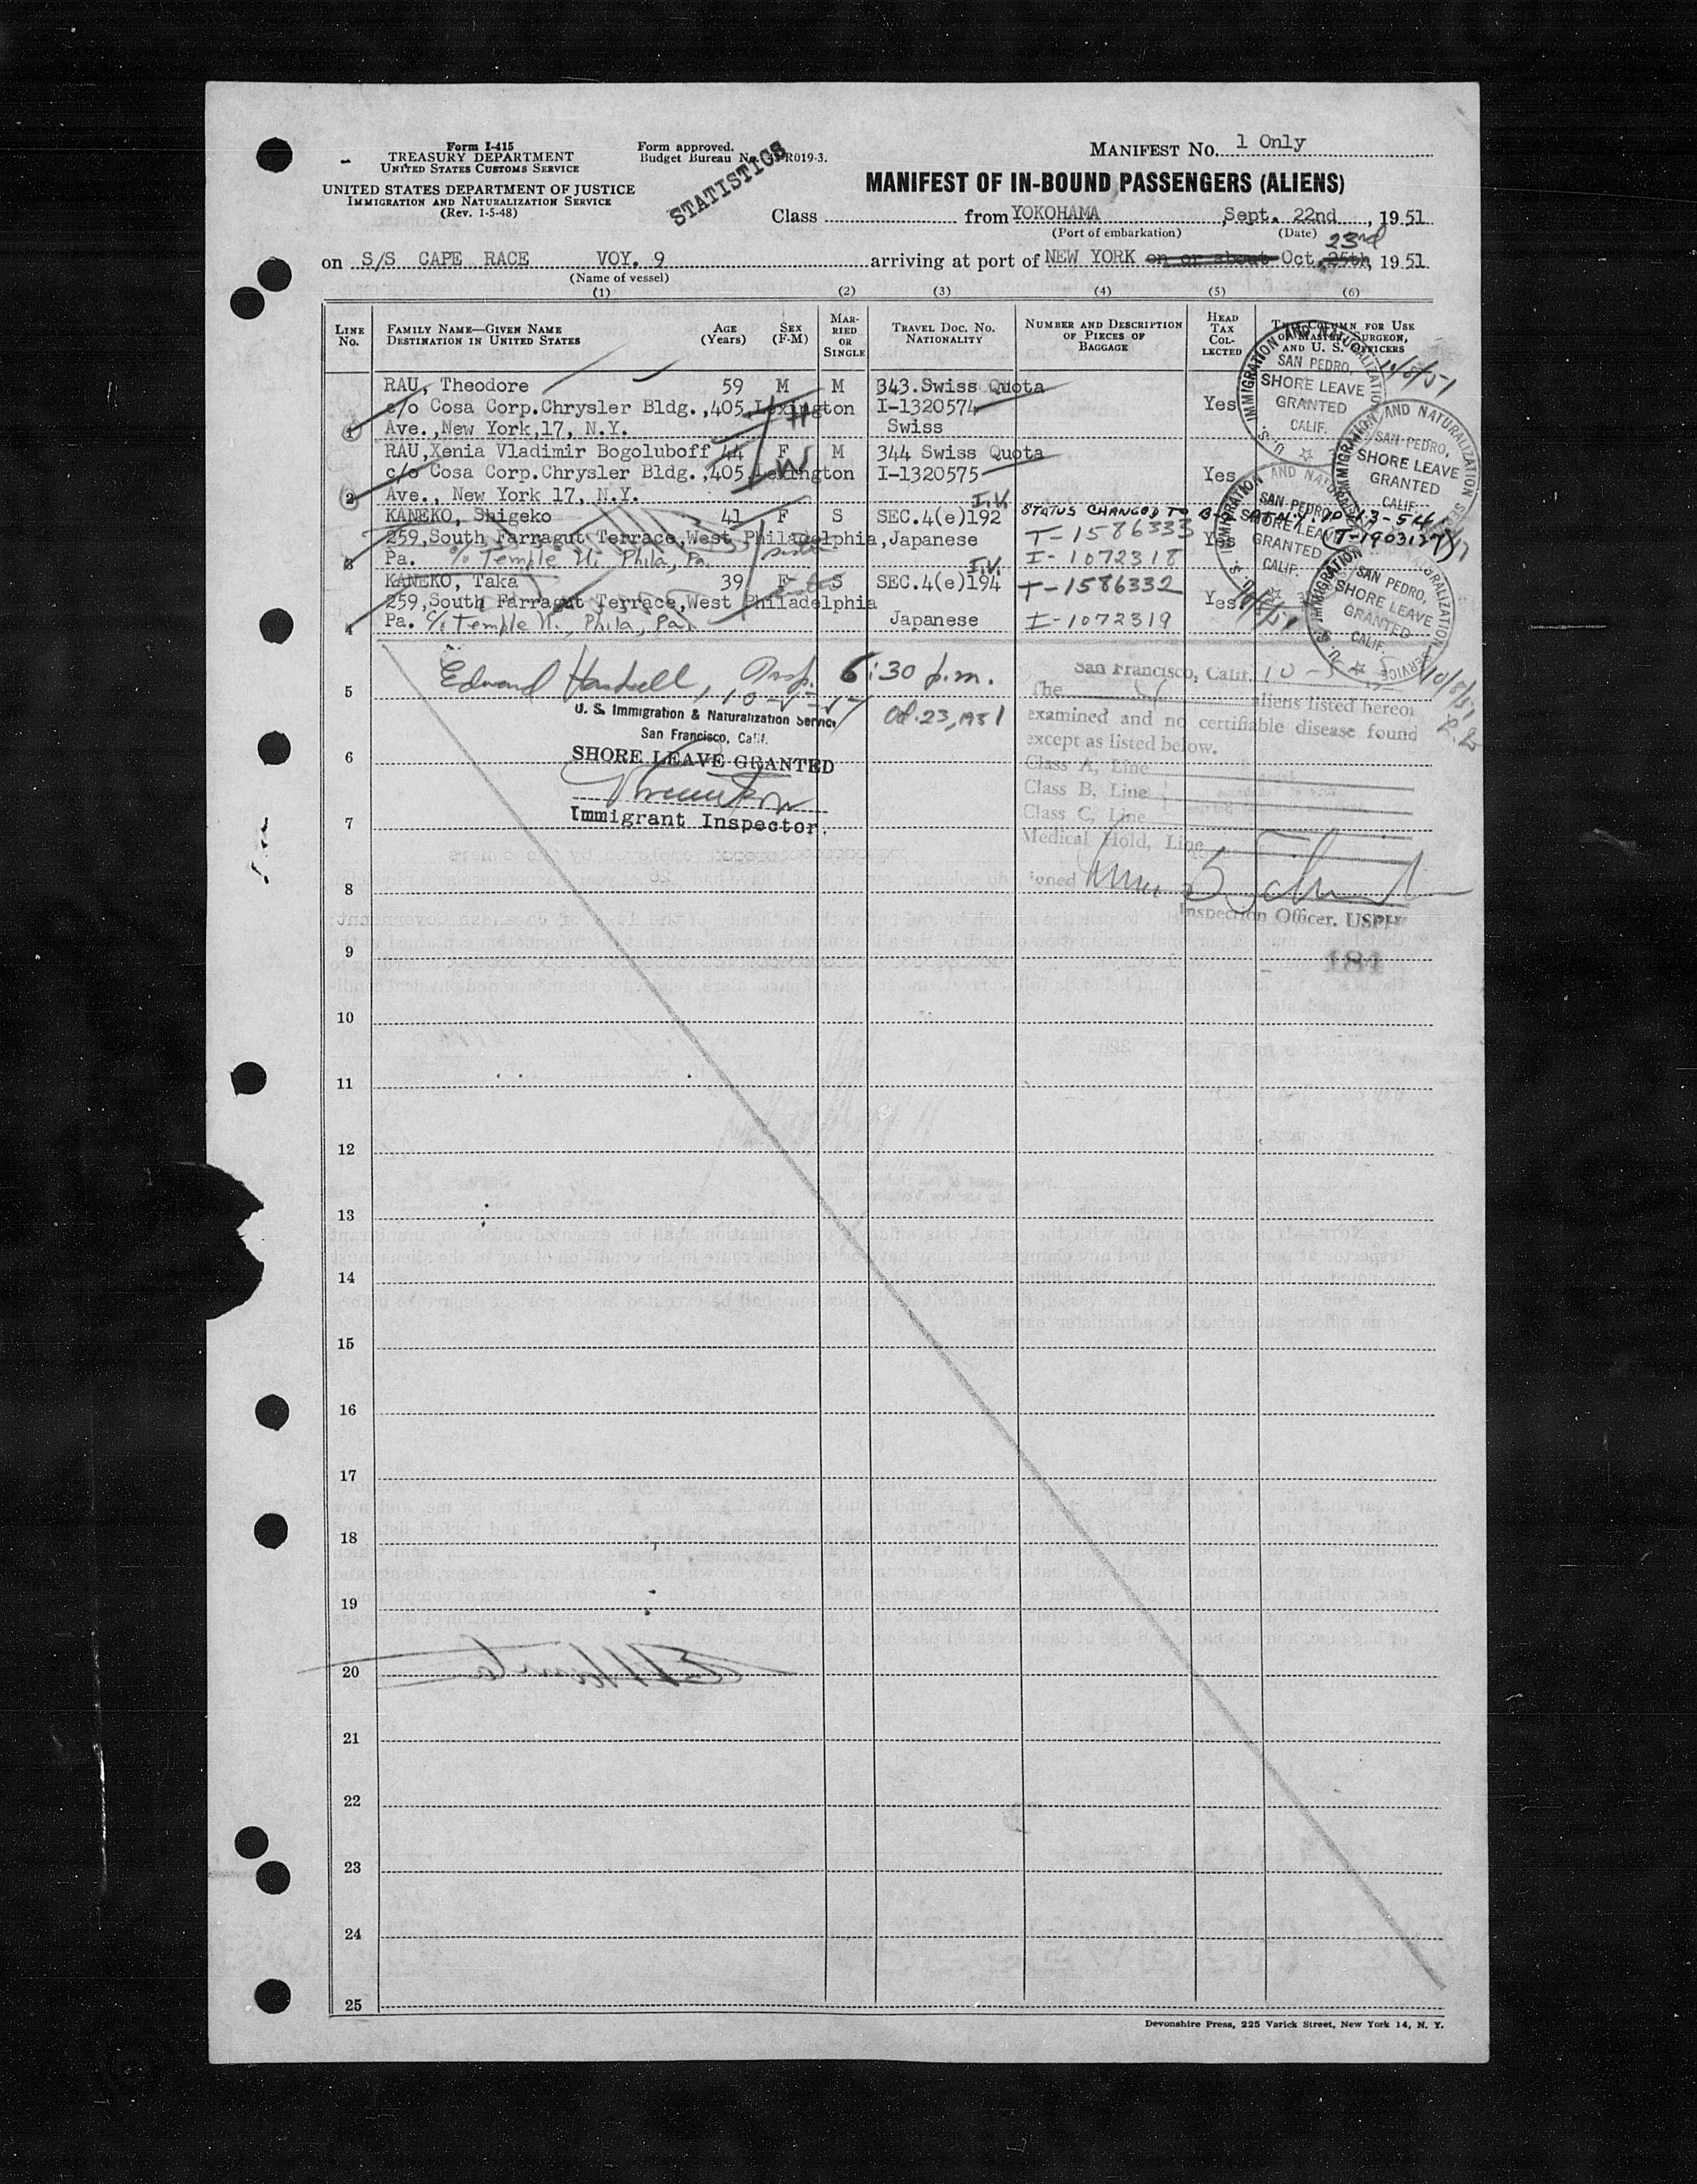 Form I-415
TREASURY DEPARTMENT
UNITED STATES CUSTOMS SERVICE
UNITED STATES DEPARTMENT OF JUSTICE
IMMIGRATION AND NATURALIZATION SERVICE
(Rev. 1-5-48)
Form approved.
Budget Bureau No. R019-3.
STATISTICS
MANIFEST NO. 1 Only
MANIFEST OF IN-BOUND PASSENGERS (ALIENS)
Class from YOKOHAMA, Sept. 22nd, 1951
(Port of embarkation) (Date)
23rd
on S/S CAPE RACE VOY. 9 arriving at port of NEW YORK on or about Oct. 25th, 1951
(Name of vessel)
(1) (2) (3) (4) (5) (6)
LINE No.
FAMILY NAME—GIVEN NAME
DESTINATION IN UNITED STATES
AGE (Years)
SEX (F-M)
MARRIED OR SINGLE
TRAVEL DOC. NO.
NATIONALITY
NUMBER AND DESCRIPTION OF PIECES OF BAGGAGE
HEAD TAX COLLECTED
THIS COLUMN FOR USE OF MASTER, SURGEON, AND U. S. OFFICERS
RAU, Theodore 59 M M 343 Swiss Quota
c/o Cosa Corp.Chrysler Bldg.,405 Lexington I-1320574 Yes
1 Ave.,New York,17, N.Y. Swiss
H
RAU,Xenia Vladimir Bogoluboff 44 F M 344 Swiss Quota
c/o Cosa Corp.Chrysler Bldg.,405 Lexington I-1320575 Yes
2 Ave., New York 17, N.Y.
W
I.V.
KANEKO, Shigeko 41 F S SEC.4(e)192 STATUS CHANGED TO
259,South Farragut Terrace,West Philadelphia,Japanese T-1586333 Yes T-1903127
3 Pa. c/o Temple U. Phila, Pa. sister I-1072318
I.V.
KANEKO, Taka 39 F S SEC.4(e)194 T-1586332
259,South Farragut Terrace,West Philadelphia Yes
4 Pa. c/o Temple U., Phila, Pa. Japanese I-1072319
IMMIGRATION AND NATURALIZATION
SAN PEDRO,
SHORE LEAVE
GRANTED
CALIF.
U. S.
10/8/51
IMMIGRATION AND NATURALIZATION SERVICE
SAN PEDRO,
SHORE LEAVE
GRANTED
CALIF.
IMMIGRATION AND
SAN PEDRO,
SHORE LEAVE
GRANTED
CALIF.
U. S.
IMMIGRATION
NATURALIZATION SERVICE
SAN PEDRO,
SHORE LEAVE
GRANTED
CALIF.
U. S.
10/8/51
Edward Haskell, Insp. 6:30 p.m.
Oct. 23, 1951
U. S. Immigration & Naturalization Service
San Francisco, Calif.
SHORE LEAVE GRANTED
Immigrant Inspector.
San Francisco, Calif. 10
The aliens listed hereon
examined and no certifiable disease found
except as listed below.
Class A, Line
Class B, Line
Class C, Line
Medical Hold, Line
Signed
Inspection Officer, USPH
184
5
6
7
8
9
10
11
12
13
14
15
16
17
18
19
20
21
22
23
24
25
Devonshire Press, 225 Varick Street, New York 14, N. Y.